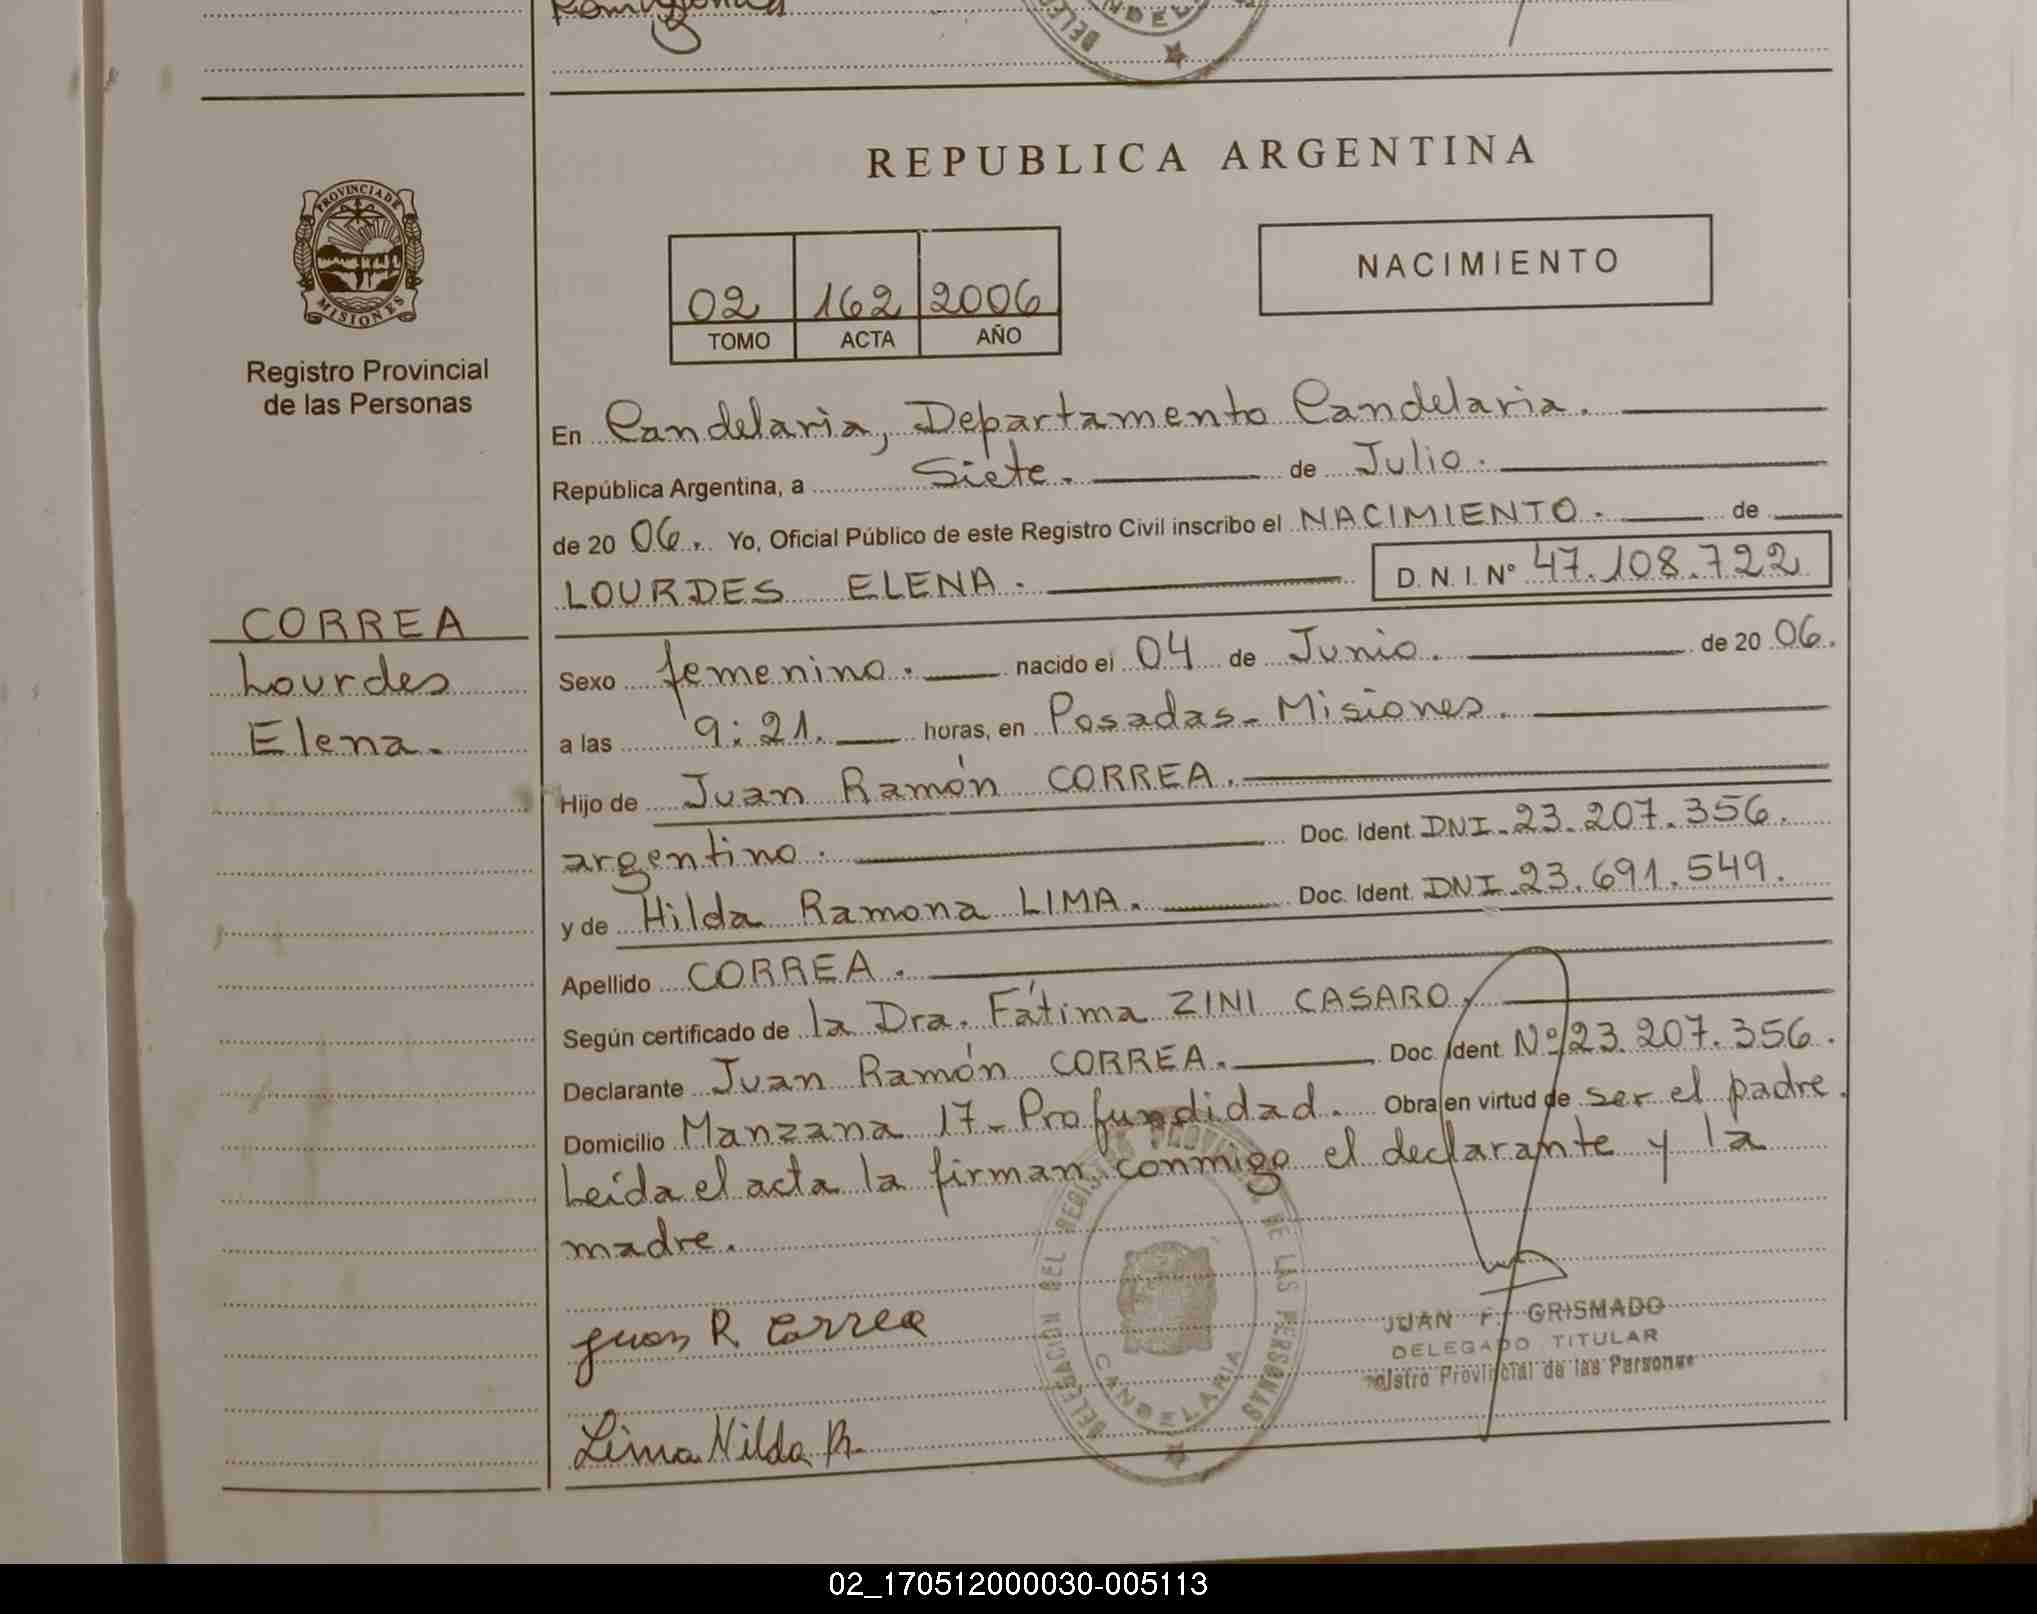 REPUBLICA ARGENTINA
PROVINCIA DE
MISIONES
Registro Provincial
de las Personas
NACIMIENTO
02 162 2006
TOMO ACTA AÑO
En Candelaria, Departamento Candelaria.
República Argentina, a Siete. de Julio.
de 20 06. Yo, Oficial Público de este Registro Civil inscribo el NACIMIENTO. de
LOURDES ELENA. D.N.I. Nº 47.108.722
CORREA
Lourdes
Elena.
Sexo femenino. nacido el 04 de Junio. de 20 06.
a las 9:21. horas, en Posadas- Misiones.
Hijo de Juan Ramón CORREA.
argentino. Doc. Ident. DNI-23.207.356.
y de Hilda Ramona LIMA. Doc. Ident. DNI-23.691.549.
Apellido CORREA.
Según certificado de la Dra. Fátima ZINI CASARO.
Declarante Juan Ramón CORREA. Doc. Ident. Nº 23.207.356.
Domicilio Manzana 17- Profundidad. Obra en virtud de ser el padre.
Leída el acta la firman conmigo el declarante y la
madre.
Juan R Correa
Lima Hilda R.
DELEGACION DEL REGISTRO PROVINCIAL DE LAS PERSONAS
CANDELARIA
JUAN F. GRISMADO
DELEGADO TITULAR
Registro Provincial de las Personas
02_170512000030-005113